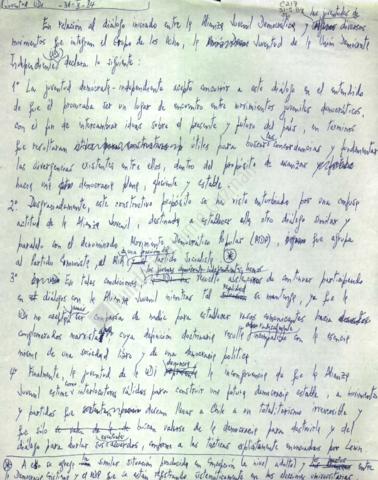 Juventud UDI - 30-X-84
En relación al diálogo iniciado entre la Alianza Juvenil Democrática y las juventudes de diversos
movimientos que integran el Grupo de los Ocho, la Juventud de la Unión Demócrata
Independiente (UDI) declara lo siguiente:
1° La juventud demócrata-independiente aceptó concurrir a este diálogo en el entendido
de que él procuraba ser un lugar de encuentro entre movimientos juveniles democráticos,
con el fin de intercambiar ideas sobre el presente y futuro del país, en términos
que resultaran útiles para buscar las concordancias y fundamentar
las divergencias existentes entre ellos, dentro del propósito de avanzar
hacia una democracia plena, eficiente y estable.
2° Desgraciadamente, este constructivo propósito se ha visto enturbiado por una confusa
actitud de la Alianza Juvenil, destinada a establecer otro diálogo similar y
paralelo con el denominado Movimiento Democrático Popular (MDP), que agrupa
al partido comunista, al MIR y del partido Socialista
3° En tales condiciones, resuelto de continuar participando
en el diálogo con la Alianza Juvenil mientras tal se mantenga, ya que la
UDI no acepta ser comparsa de nadie para establecer vasos comunicantes hacia
conglomerados marxistas cuya definición doctrinaria resulta incompatible con la esencia
misma de una sociedad libre y de una democracia política.
4° Finalmente, la juventud de la UDI la incongruencia de que la Alianza
Juvenil estime como interlocutores válidos para construir una futura democracia estable, a movimientos
y partidos que desean llevar a Chile a un totalitarismo irreversible y
que sólo buscan valerse de la democracia para destruirla y del
diálogo para burlar sus acuerdos, conforme a las tácticas explícitamente enunciadas por Lenin
A ello se agrega la similar situación producida en a nivel adulto, y entre
la Democracia Cristiana y el MDP que se están repitiendo sistemáticamente en las elecciones universitarias